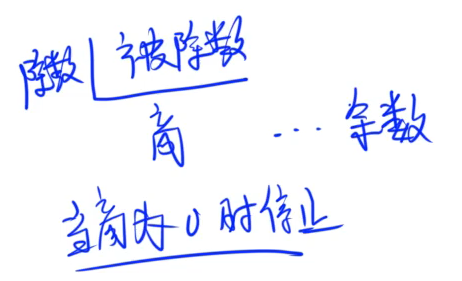 除数 被除数
商 ... 余数
当商为0时停止